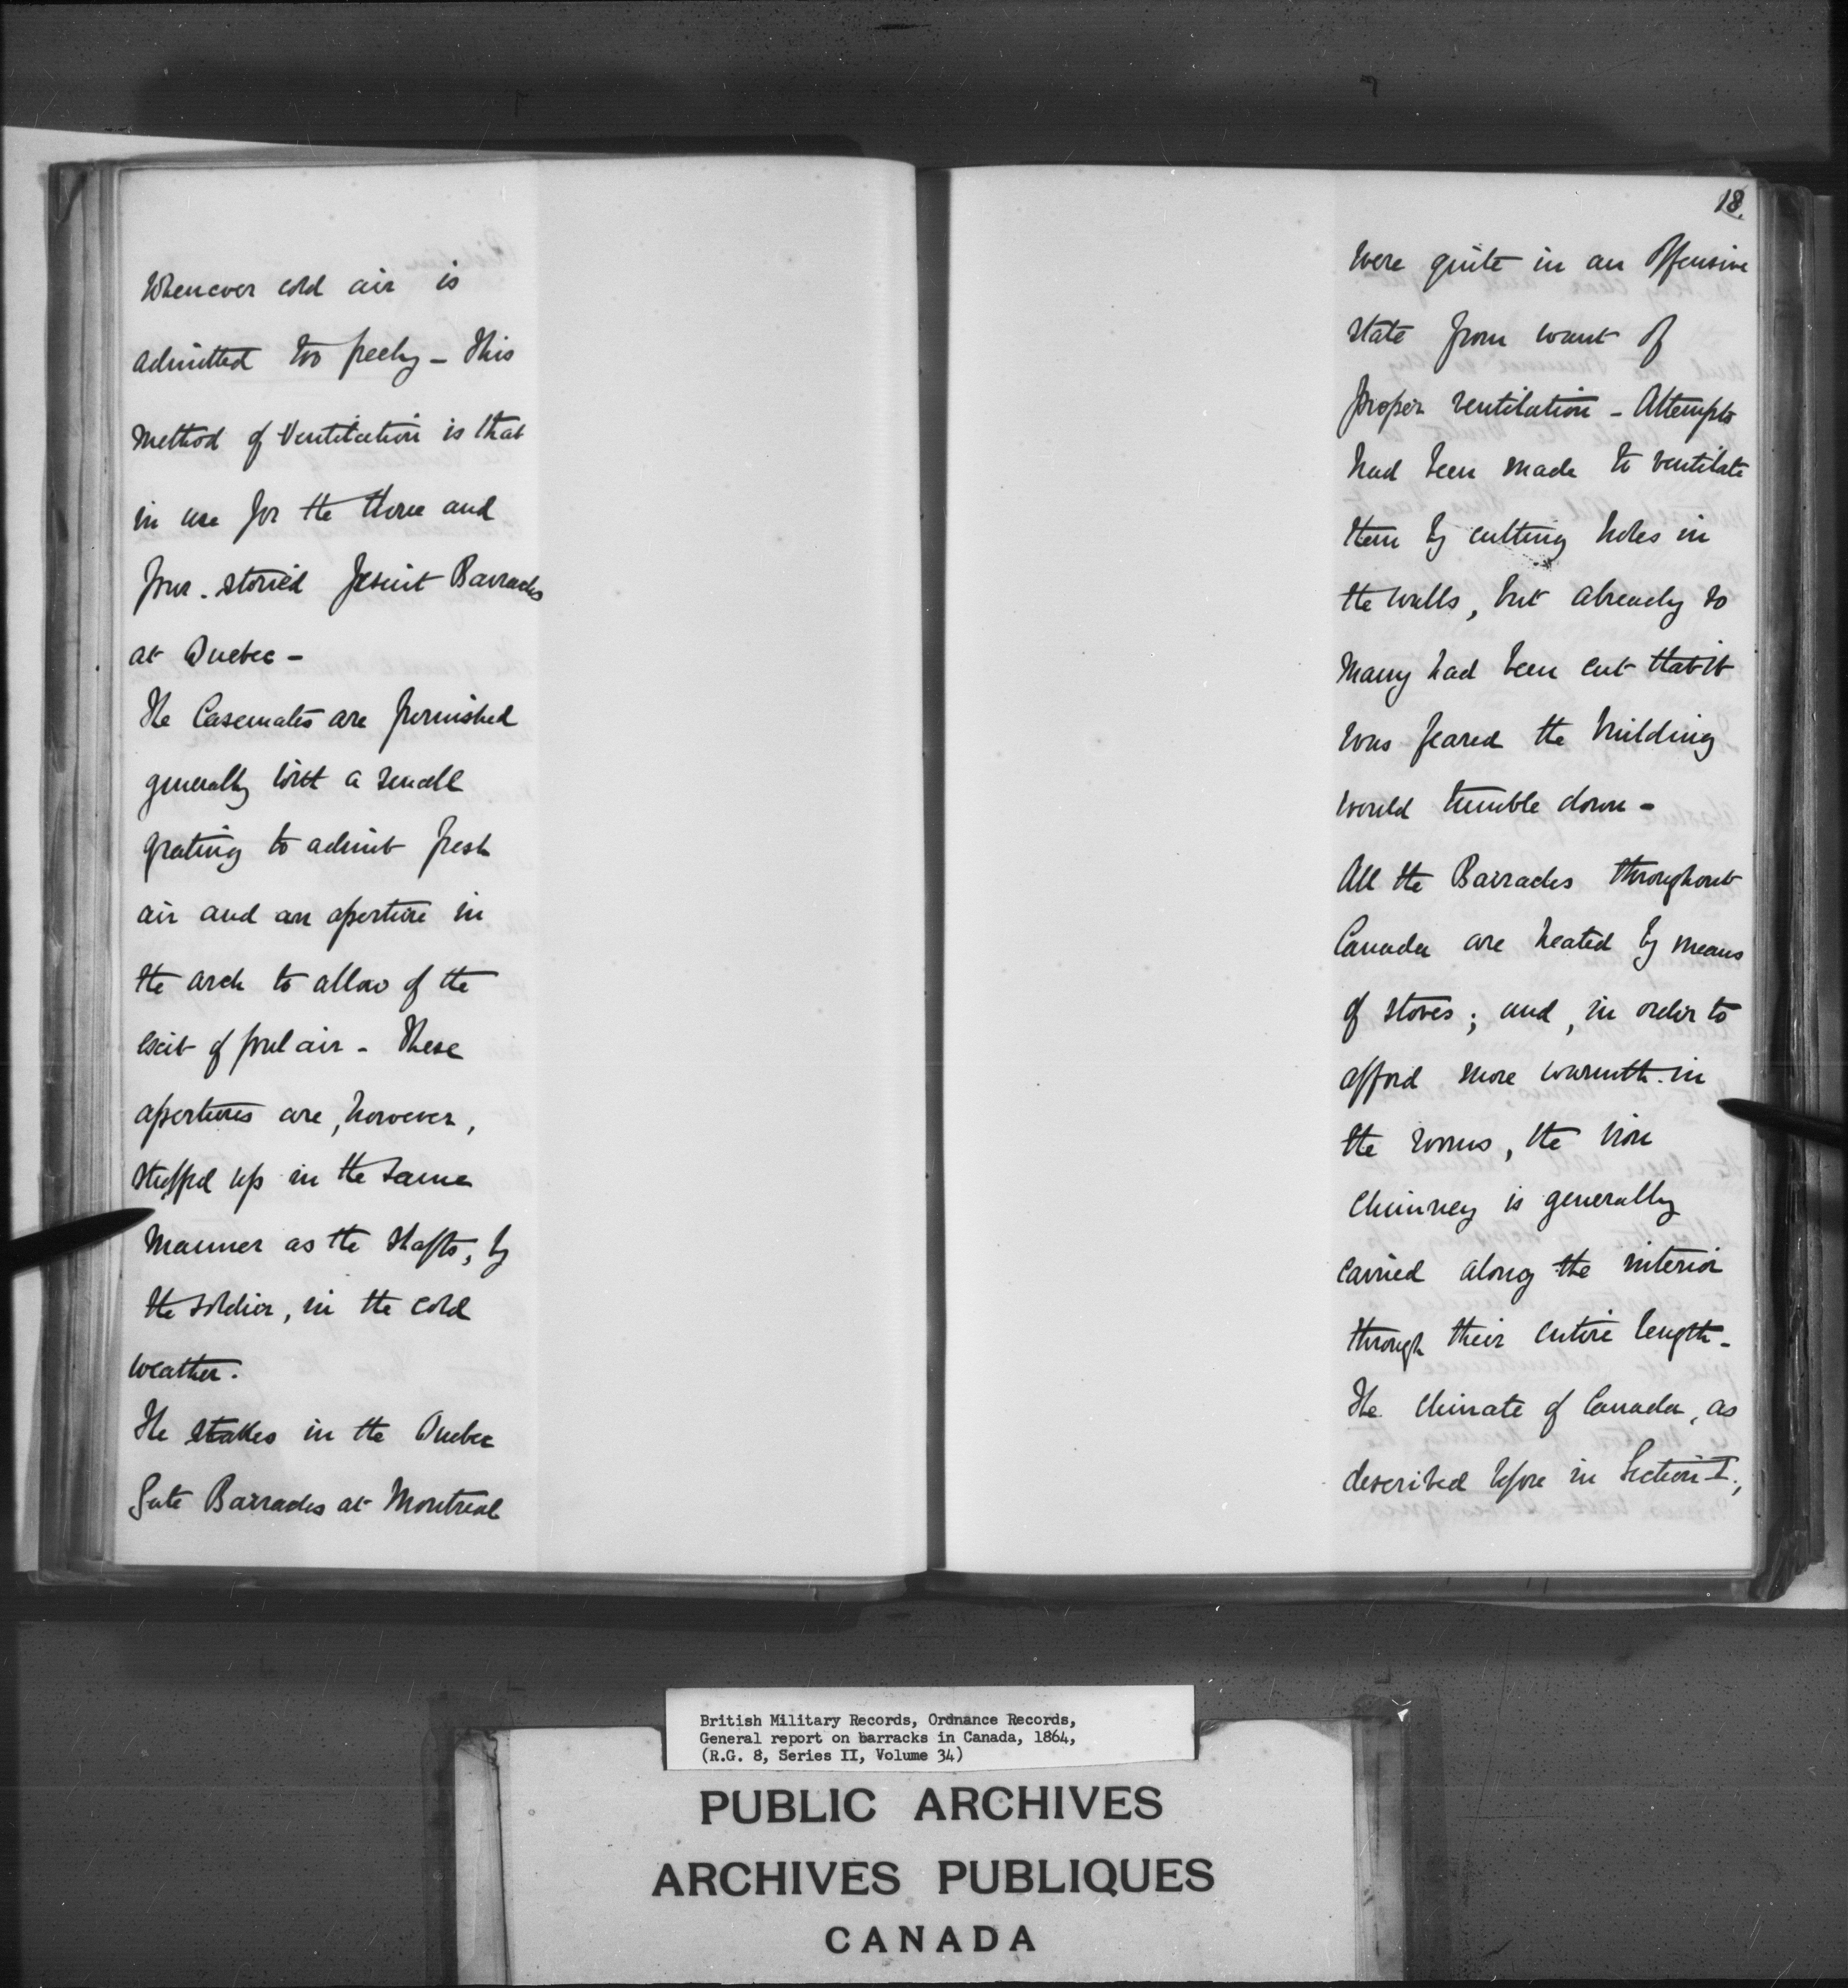 Whenever cold air is
admitted too freely - This
method of Ventilation is that
in use for the three and
four-storied Jesuit Barracks
at Quebec -
The Casemates are furnished
generally with a small
grating to admit fresh
air and an aperture in
the arch to allow of the
exit of foul air - These
apertures are, however,
stuffed up in the same
manner as the shafts, by
the soldier, in the cold
weather.
The stables in the Quebec
Gate Barracks at Montreal
18.
were quite in an offensive
state from want of
proper ventilation - Attempts
had been made to ventilate
them by cutting holes in
the walls, but already so
many had been cut that it
was feared the building
would tumble down -
All the Barracks throughout
Canada are heated by means
of stoves; and, in order to
afford more warmth in
the rooms, the iron
chimney is generally
carried along the interior
through their entire length -
The climate of Canada, as
described before in Section I,
British Military Records, Ordnance Records,
General report on barracks in Canada, 1864,
(R.G. 8, Series II, Volume 34)
PUBLIC ARCHIVES
ARCHIVES PUBLIQUES
CANADA